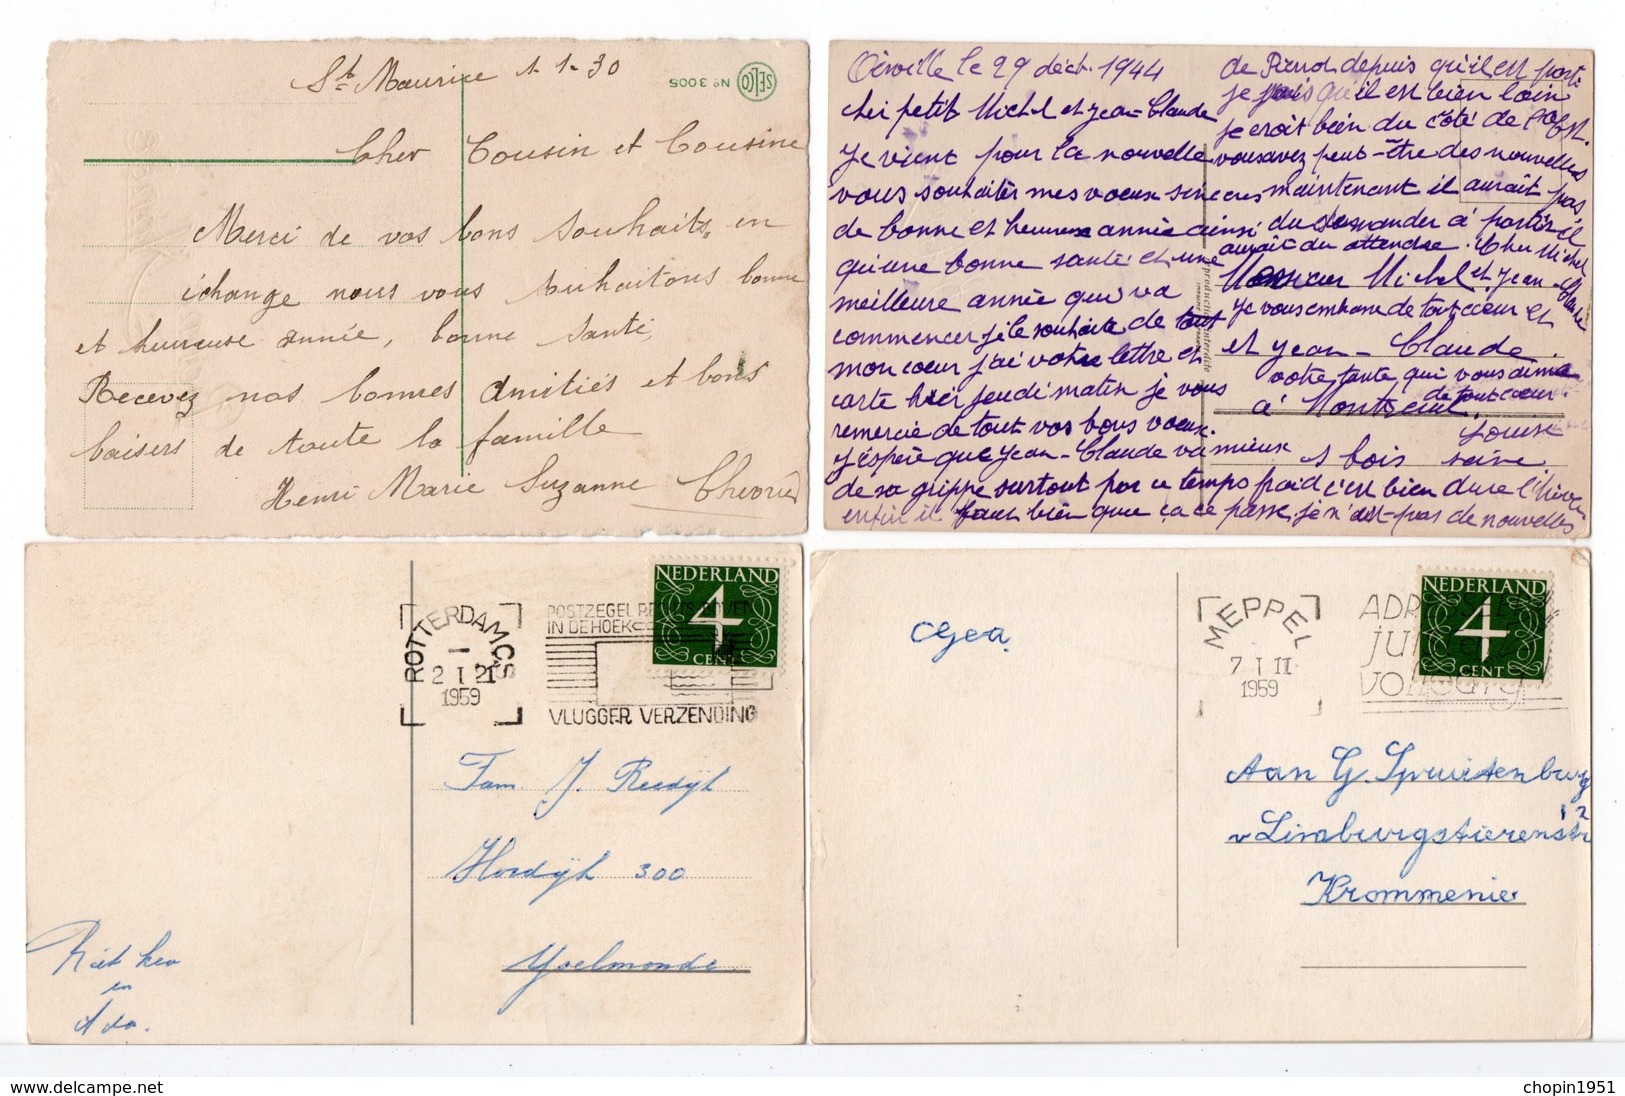 St Maurice 1.1.30
SELCO No 3005
Cher Cousin et Cousine
Merci de vos bons souhaits, en
échange nous vous souhaitons bonne
et heureuse année, bonne santé,
Recevez nos bonnes amitiés et bons
baisers de toute la famille
Henri Marie Suzanne
le 29 dect. 1944
cher petit Michel et jean-Claude
Je vient pour la nouvelle
vous souhaiter mes voeux sincères
de bonne et heureuse année ainsi
qu'une bonne santé et une
meilleure année qui va
commencer je le souhaite de tout
mon coeur j'ai votre lettre et
carte hier jeudi matin je vous
remercie de tout vos bons voeux.
J'éspère que jean-Claude va mieux
de sa grippe surtout par ce temps froid c'est bien dure l'hiver
enfin il faut bien que ça ce passe, je n'est pas de nouvelles
de depuis qu'il est parti
je qu'il est bien loin
je croit bien du côté de
vous avez peut-être des nouvelles
maintenant il aurait pas
du demander à partir il
aurait du attendre. Cher Michel
et jean-Claude
je vous embrasse de tout coeur et
votre tante qui vous aime
de tout coeur.
Louise
Monsieur Michel
et jean-Claude.
à Montreuil.
s bois seine
reproduction interdite
ROTTERDAM CS
2 I 21
1959
POSTZEGEL RECHTS BOVEN
IN DE HOEK
VLUGGER VERZENDING
NEDERLAND
4
CENT
Fam. J. Reedijk
Hordijk 300
Yselmonde
Riet
en
Ada.
MEPPEL
7 I 11
1959
NEDERLAND
4
CENT
Aan G. Spruitenburg
v Limburgstierenstr
12
Krommenie
chopin1951